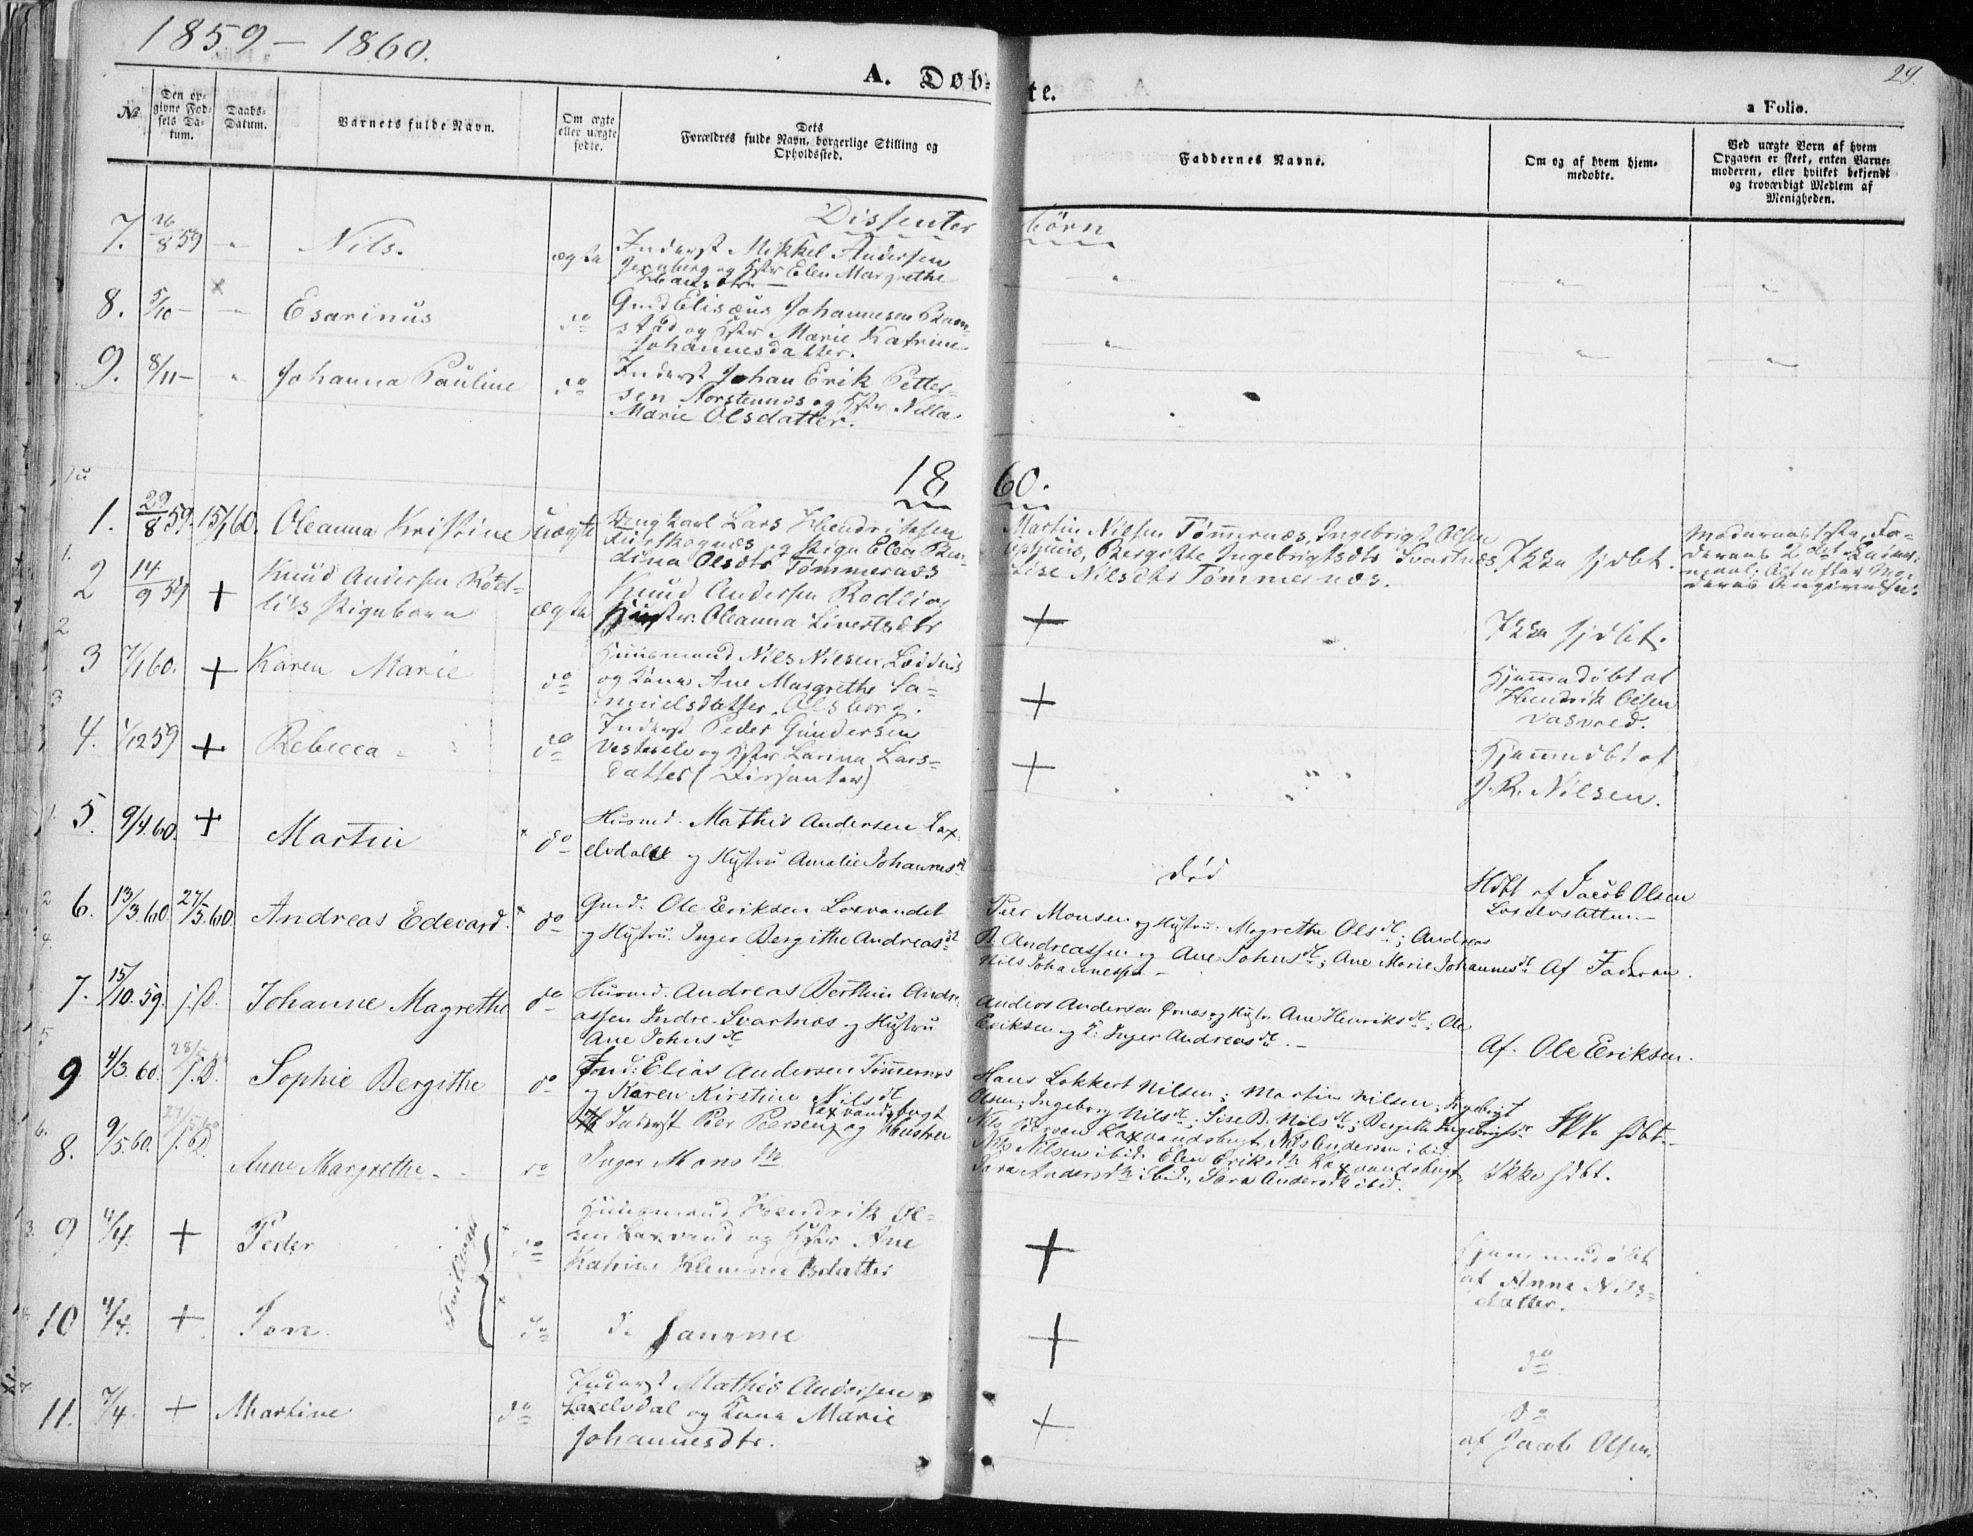 1859 – 1860.
29.
A. Døb-
te.
a Folio.
No
Den op-
givne Fød-
sels Da-
tum.
Daabs-
Datum.
Barnets fulde Navn.
Om ægte
eller uægte
fødte.
Dets
Forældres fulde Navn, borgerlige Stilling og
Opholdssted.
Faddernes Navne.
Om og af hvem hjem-
medøbte.
Ved uægte Børn af hvem
Opgaven er skeet, enten Barne-
moderen, eller hvilket bekjendt
og troværdigt Medlem af
Menigheden.
Dissenter børn
7. 26/8 59 " Nils. ægte Inderst Mikkel Andersen
og Hstr Elen Margrethe
8. 5/10 – " Esarinus do Gmd Elisæus Johannesen
og Hstr Marie Katrine
Johannesdatter.
9. 8/11 – " Johanna Pauline do Inderst Johan Erik Petter-
sen og Hstr. Nilla
Marie Olsdatter.
1860.
1. 29/8 59. 15/1 60. Oleanna Kristine uægte Ung Karl Lars Hendriksen
og Pige Elen
dina Olsdtr Tømmernæs
Martin Nilsen Tømmernæs, Ingebrigt Olsen
Bergitte Ingebrigtsdtr Svartnæs,
Lise Nilsdtr Tømmernæs.
Ikke hjdbt.
Moderens 1ste, Fa-
derens 2det Leier-
maal; Alt efter Mo-
derens Angivelse.
2 14/9 59 + Knud Andersen Rød-
lis Pigebarn ægte Knud Andersen Rødli og
Hustr. Oleanna Sivertsdtr + Ikke hjdbt.
3 7/1 60. + Karen Marie do Huusmand Nils Nilsen
og Kone Ane Margrethe Sa-
muelsdatter. Olsborg. + Hjemmedøbt af
Hendrik Olsen
4. 1/12 59 + Rebecca – do Inderst Peder Gundersen
og Hstr Larina Lars-
datter (Dissenter) + Hjemmedbt af
J. R. Nilsen.
5. 9/4.60. + Martin do Husmd. Mathis Andersen Lax-
elvdalen og Hustru Amalie Johannesdt
død
Hdbt af Jacob Olsen
6. 13/3.60. 27/5.60. Andreas Edevard. do Gmd. Ole Eriksen Laxvandet
og Hustru. Inger Bergithe Andreasdt
Peer Monsen og Hustru. Magrethe Olsdt; Andreas
B. Andreassen og Ane Johnsdt; Ane Marie Johannesdt
Nils Johannessen –
Af Faderen.
7. 15/10.59. j.D. Johanne Magrethe do Husmd. Andreas Berthin Andre-
assen Indre-Svartnæs og Hustru
Ane Johnsdt
Anders Andersen Ørnæs og Hustr. Ane Henriksdt; Ole
Eriksen og K: Inger Andreasdt. –
Af. Ole Eriksen.
9 4/3.60. j.D. Sophie Bergithe do Ind: Elias Andersen Tømmernæs
og Karen Kirstine Nilsdt
Hans Lokkert Nilsen; Martin Nilsen; Ingebrigt
Olsen; Ingeborg Nilsdt; Lise B. Nilsdt; Bergitte Ingebrigtsdt
Ikke hdbt –
8. 9/5.60. Anne Margrethe – do Inderst Peer Peersen og Hustru
Laxvandsbugt
Inger Monsdtr
Nils Laxvandsbugt, Nils Andersen ibid.
Nils Nilsen ibid. Elen Eriksdtr Laxvandsbugt
Sara Andersdtr ibid., Sara Andersdtr ibid.
Ikke hdbt.
9 4/4. + Peder do Huusmand Hendrik Ol-
sen Laxvand og Hstr Ane
Katrine Klemmetsdatter + Hjemmedøbt
af Anne Nils-
datter.
Tvillinger
10 4/4. + Jon do de samme + do
11. 7/4. + Martine do Inderst Mathis Andersen
Laxelvdal og Kone Marie
Johannesdtr. + do
af Jacob Olsen.